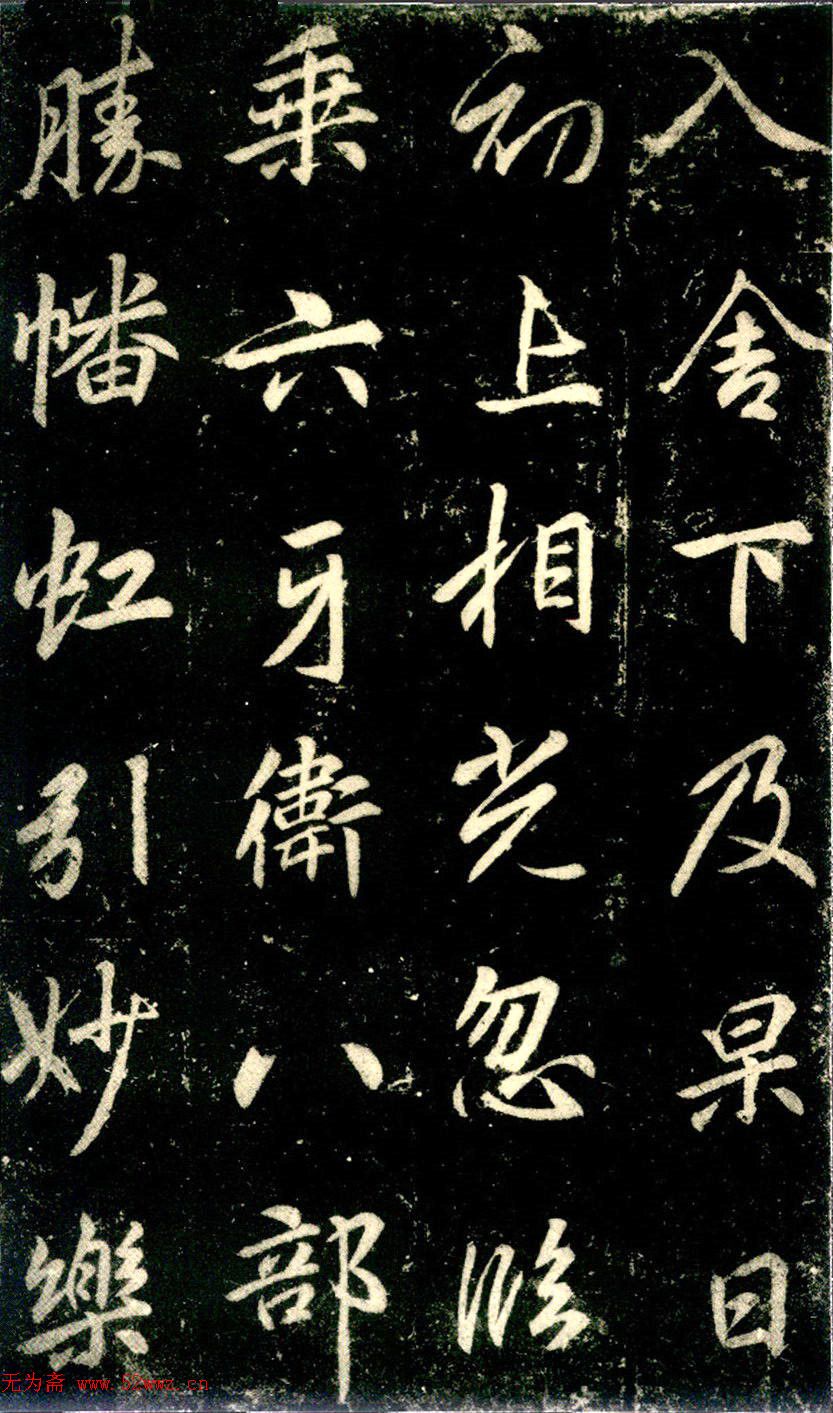 入舍下及杲日
初上相光忽臨
乗六牙衛八部
勝幡虹引妙樂
无为斋 www.52wwz.cn